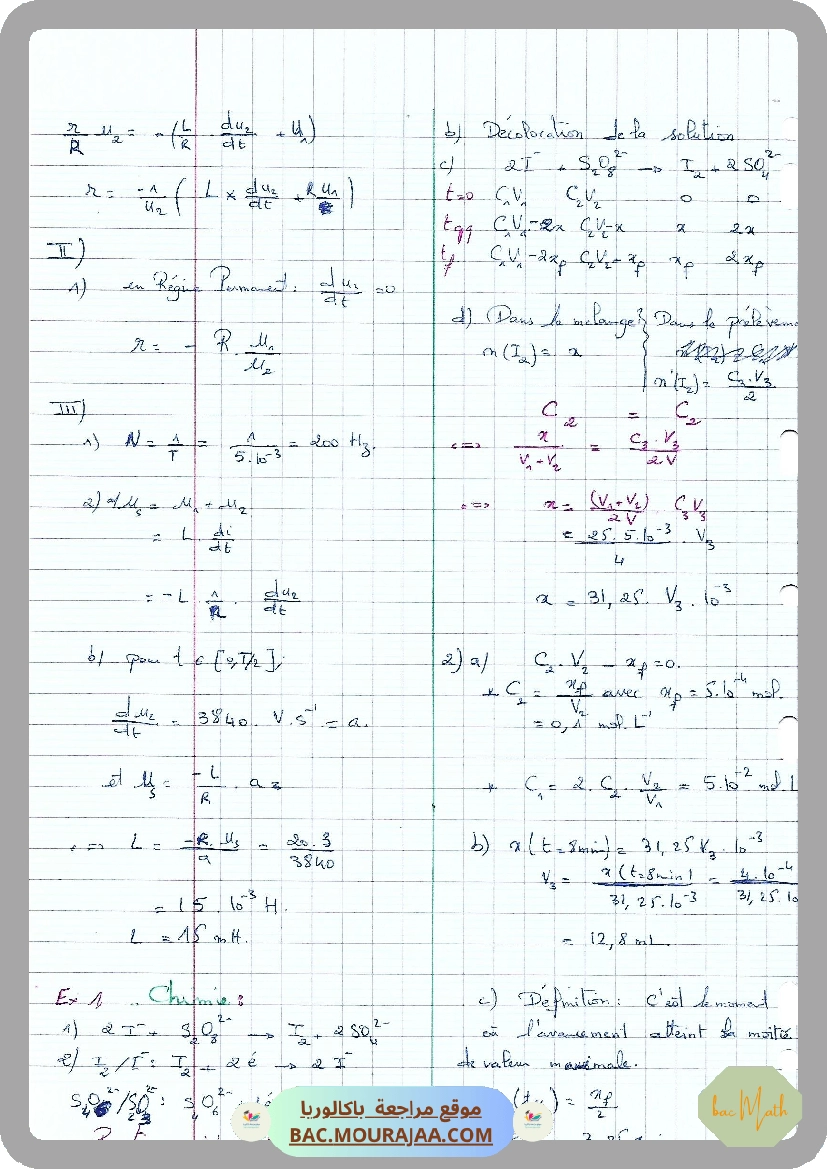 r/R u₂ = -(L/R du₂/dt + u₁)
r = -1/u₂ (L × du₂/dt + R u₁)
II)
1) en Régime Permanent : du₂/dt = 0
r = - R . u₁/u₂
III)
1) N = 1/T = 1/5.10⁻³ = 200 Hz.
2) a) u₃ = u₁ + u₂
= L . di/dt
= -L . 1/R . du₂/dt
b) pour t ∈ [0, T/2];
du₂/dt = 3840. V.s⁻¹ = a.
et u₃ = -L/R . a =
<=> L = -R.u₃/a = 20.3/3840
= 15. 10⁻³ H.
L = 15 mH.
Ex 1 .. Chimie :
1) 2I⁻ + S₂O₈²⁻ → I₂ + 2SO₄²⁻
2) I₂/I⁻ : I₂ + 2é → 2I⁻
S₄O₆²⁻/S₂O₃²⁻ : S₄O₆²⁻
b) Décoloration de la solution
c) 2I⁻ + S₂O₈²⁻ → I₂ + 2SO₄²⁻
t=0 C₁V₁ C₂V₂ 0 0
tqq C₁V₁-2x C₂V₂-x x 2x
tf C₁V₁-2xf C₂V₂-xf xf 2xf
d) Dans le mélange } Dans le prélèvem
n(I₂) = x
n'(I₂) = C₃.V₃/2
C₂ = C₂
<=> x/V₁+V₂ = C₃.V₃/2V
<=> x = (V₁+V₂)/2V C₃V₃
= 25.5.10⁻³/4 . V₃
x = 31,25. V₃ . 10⁻³
2) a/ C₂.V₂ - xf = 0.
* C₂ = xf/V₂ avec xf = 5.10⁻⁴ mol.
= 0,1 mol.L⁻¹
* C₁ = 2. C₂. V₂/V₁ = 5.10⁻² mol.L
b) x(t=8min) = 31,25 V₃ . 10⁻³
V₃ = x(t=8min)/31,25.10⁻³ = 4.10⁻⁴/31,25.10
= 12,8 mL.
c) Définition : C'est le moment
où l'avancement atteint la moitié
de valeur maximale.
= xf/2
موقع مراجعة باكالوريا
BAC.MOURAJAA.COM
bac Math